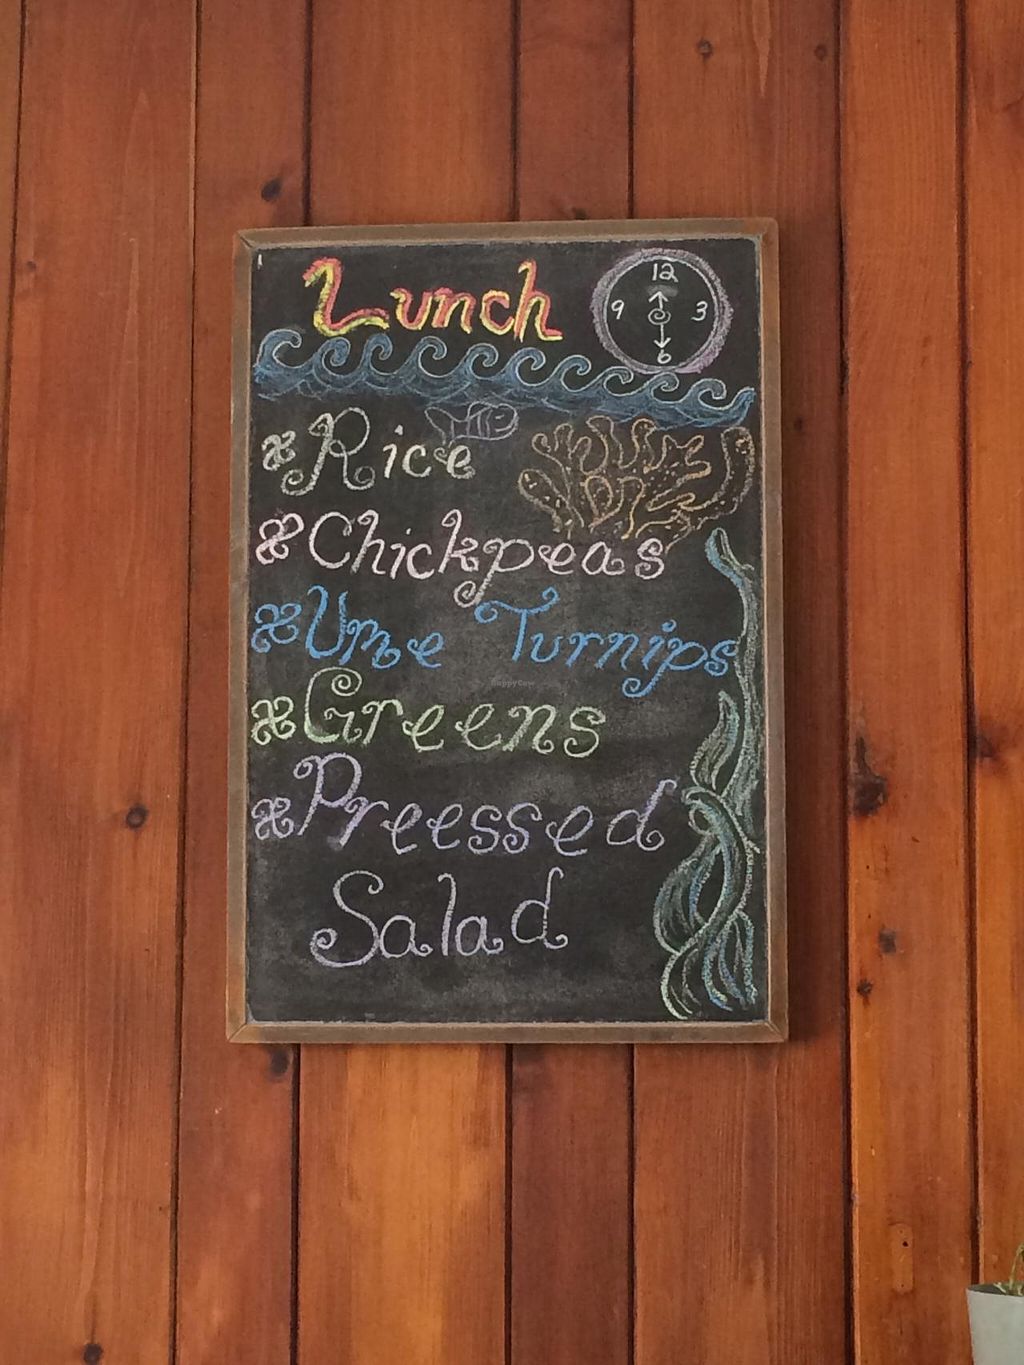 Lunch
12
9 3
6
Rice
Chickpeas
Ume Turnips
Greens
Preessed
Salad
HappyCow